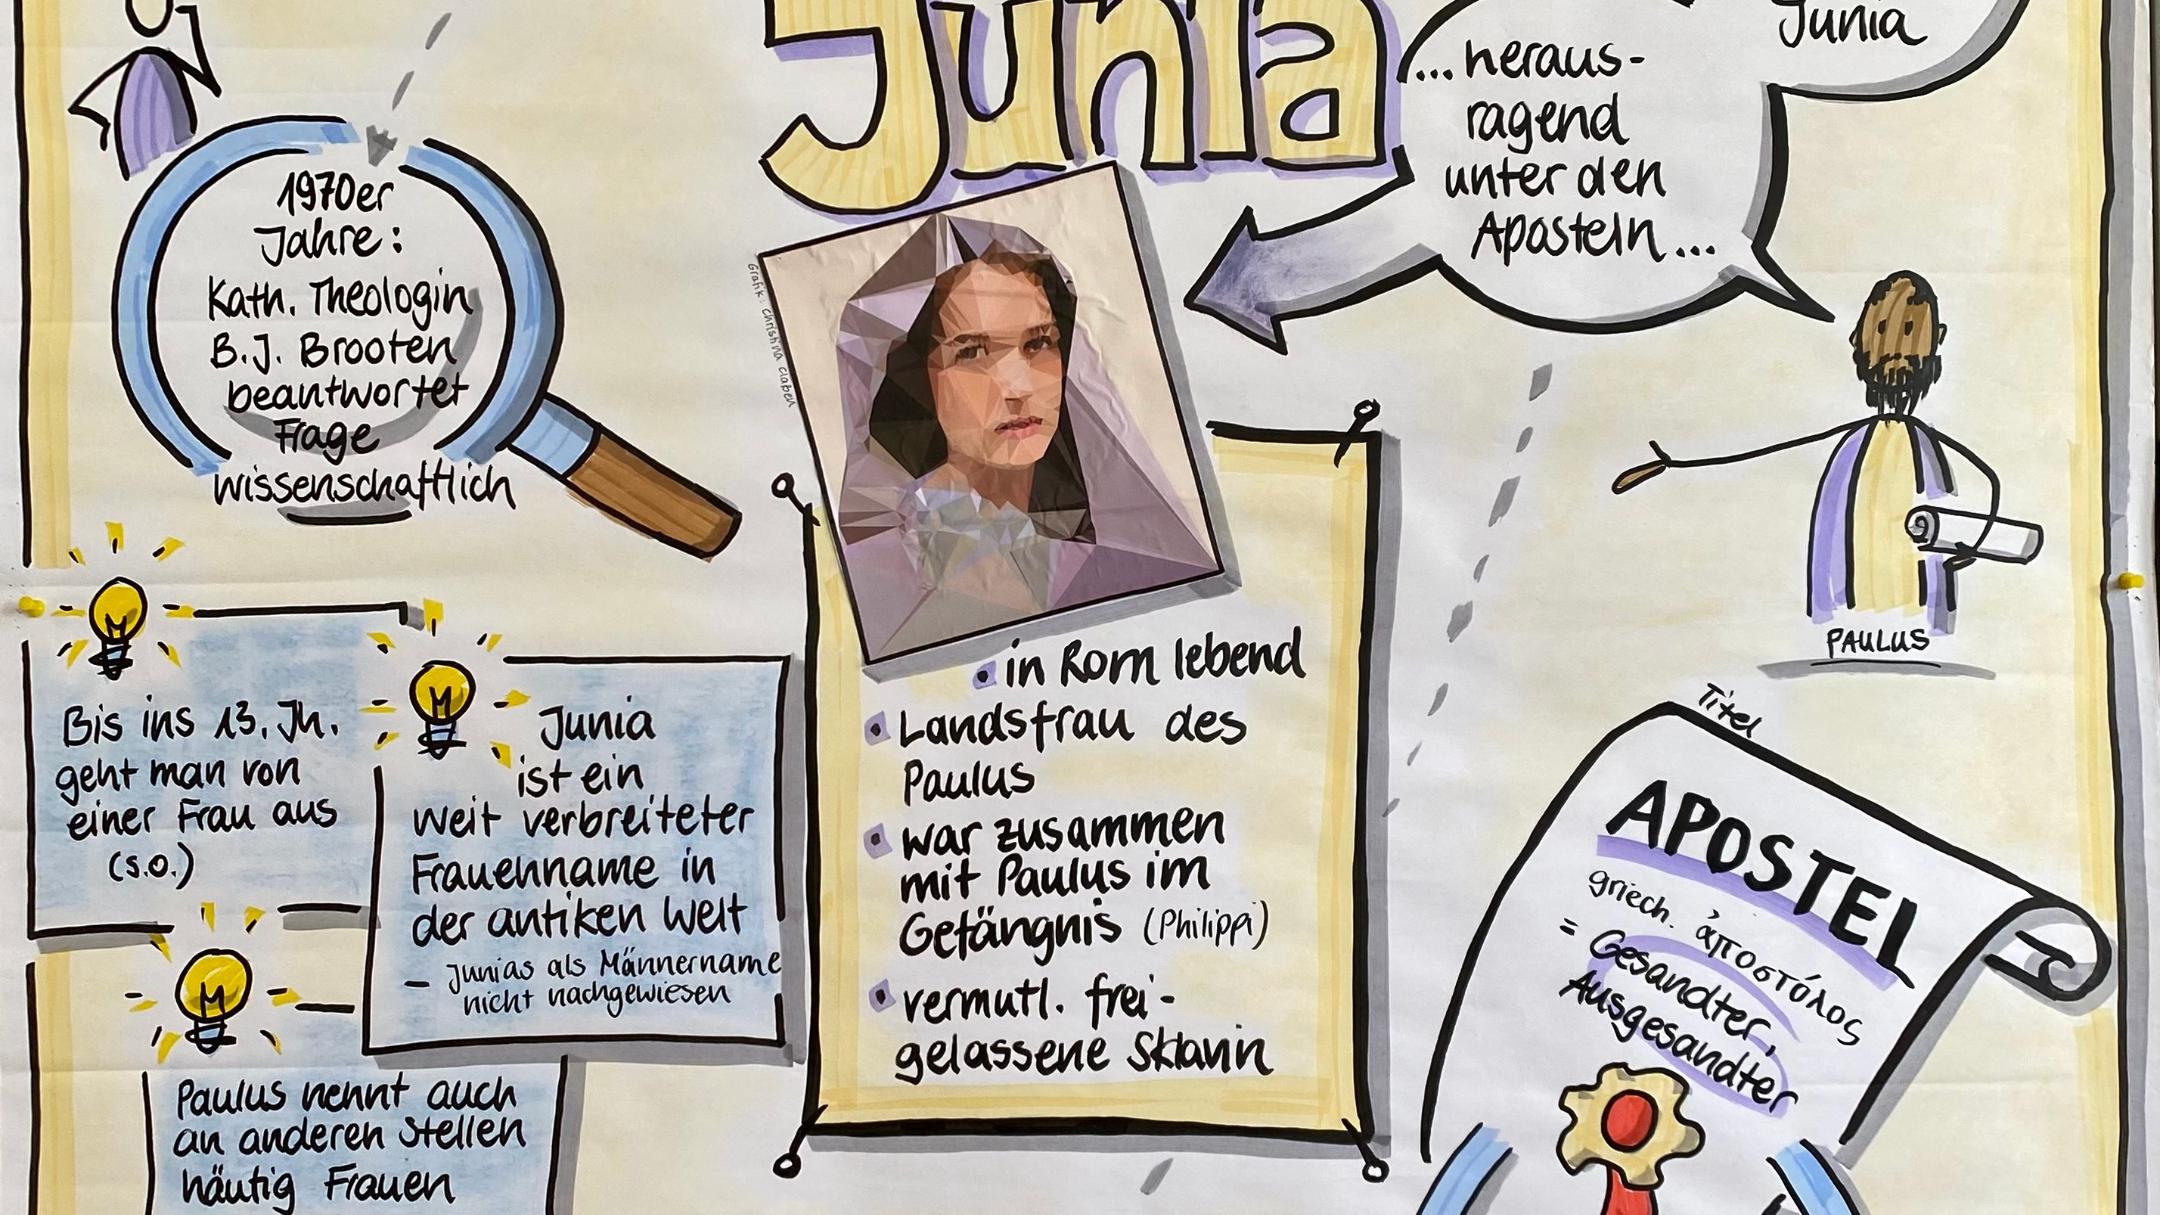 Junia
... heraus-
ragend
unter den
Aposteln ...
Junia
1970er
Jahre:
Kath. Theologin
B.J. Brooten
beantwortet
Frage
wissenschaftlich
Grafik: Christina Claßen
PAULUS
Bis ins 13. Jh.
geht man von
einer Frau aus
(s.o.)
Junia
ist ein
weit verbreiteter
Frauenname in
der antiken Welt
- Junias als Männername
nicht nachgewiesen
Paulus nennt auch
an anderen Stellen
häufig Frauen
• in Rom lebend
• Landsfrau des
Paulus
• war zusammen
mit Paulus im
Gefängnis (Philippi)
• vermutl. frei-
gelassene Sklavin
Titel
APOSTEL
griech. ἀποστόλος
= Gesandter,
Ausgesandter